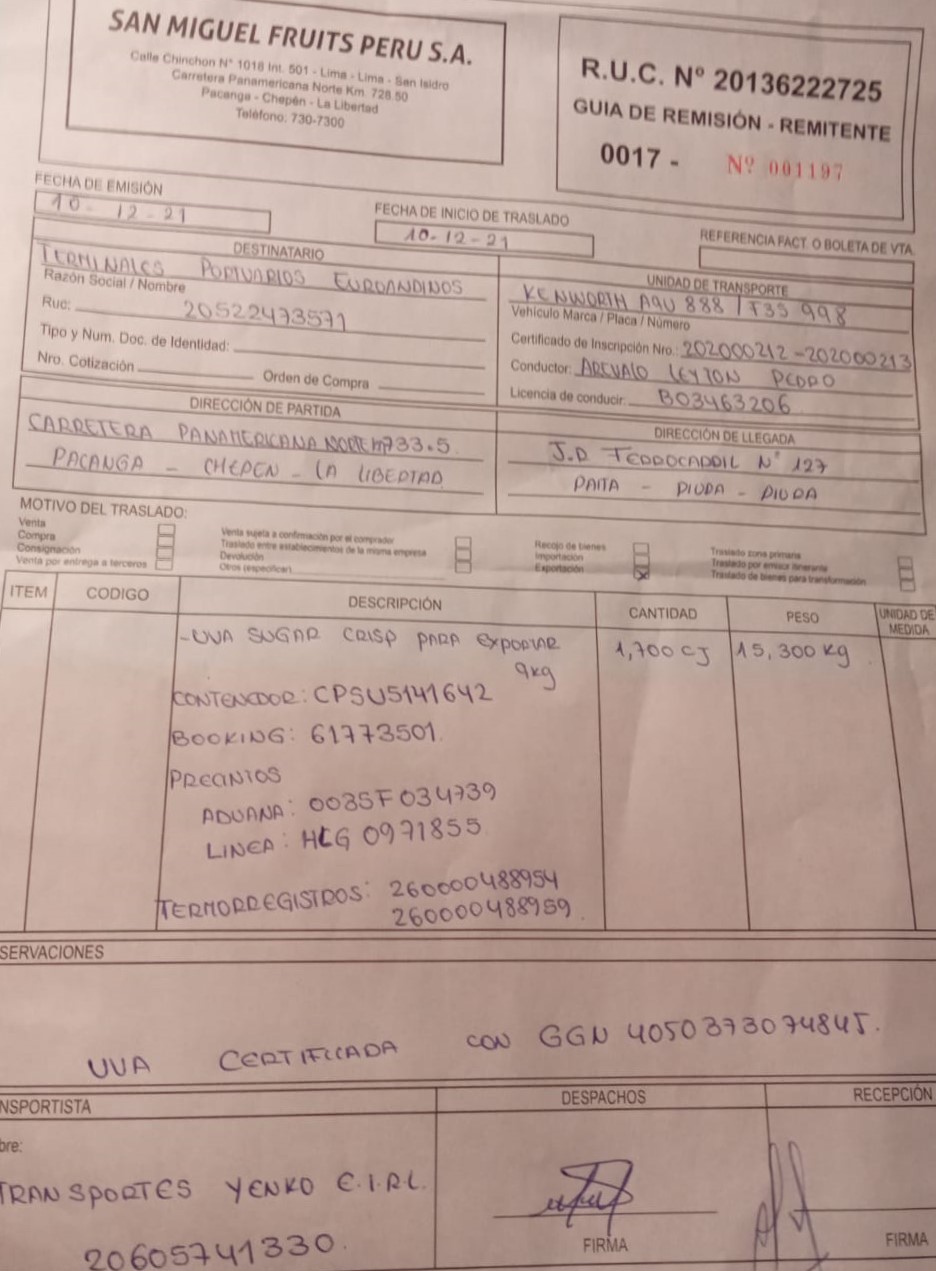 SAN MIGUEL FRUITS PERU S.A.
Calle Chinchon N° 1018 Int. 501 - Lima - Lima - San Isidro
Carretera Panamericana Norte Km. 728.50
Pacanga - Chepén - La Libertad
Teléfono: 730-7300
R.U.C. N° 20136222725
GUIA DE REMISIÓN - REMITENTE
0017 - Nº 001197
FECHA DE EMISIÓN
10-12-21
FECHA DE INICIO DE TRASLADO
10-12-21
REFERENCIA FACT. O BOLETA DE VTA.
DESTINATARIO
TERMINALES PORTUARIOS EUROANDINOS
Razón Social / Nombre
Ruc: 20522473571
Tipo y Num. Doc. de Identidad:
Nro. Cotización Orden de Compra
UNIDAD DE TRANSPORTE
KENWORTH A9U 888 / T3S 998
Vehículo Marca / Placa / Número
Certificado de Inscripción Nro.: 202000212-202000213
Conductor: AREVALO LEYTON PEDRO
Licencia de conducir: B03463206
DIRECCIÓN DE PARTIDA
CARRETERA PANAMERICANA NORTE 733.5
PACANGA - CHEPEN - LA LIBERTAD
DIRECCIÓN DE LLEGADA
J.R FERROCARRIL N° 127
PAITA - PIURA - PIURA
MOTIVO DEL TRASLADO:
Venta
Compra
Consignación
Venta por entrega a terceros
Venta sujeta a confirmación por el comprador
Traslado entre establecimientos de la misma empresa
Devolución
Otros (especificar)
Recojo de bienes
Importación
Exportación X
Traslado zona primaria
Traslado por emisor itinerante
Traslado de bienes para transformación
ITEM CODIGO DESCRIPCIÓN CANTIDAD PESO UNIDAD DE MEDIDA
-UVA SUGAR CRISP PARA EXPORTAR 1,700 CJ 15,300 Kg
9kg
CONTENEDOR: CPSU5141642
BOOKING: 61773501
PRECINTOS
ADUANA: 0035F034739
LINEA: HLG 0971855
TERMORREGISTROS: 260000488954
260000488959
SERVACIONES
UVA CERTIFICADA CON GGN 4050373074845.
NSPORTISTA
DESPACHOS
RECEPCIÓN
bre:
TRANSPORTES YENKO E.I.R.L.
20605741330.
FIRMA
FIRMA